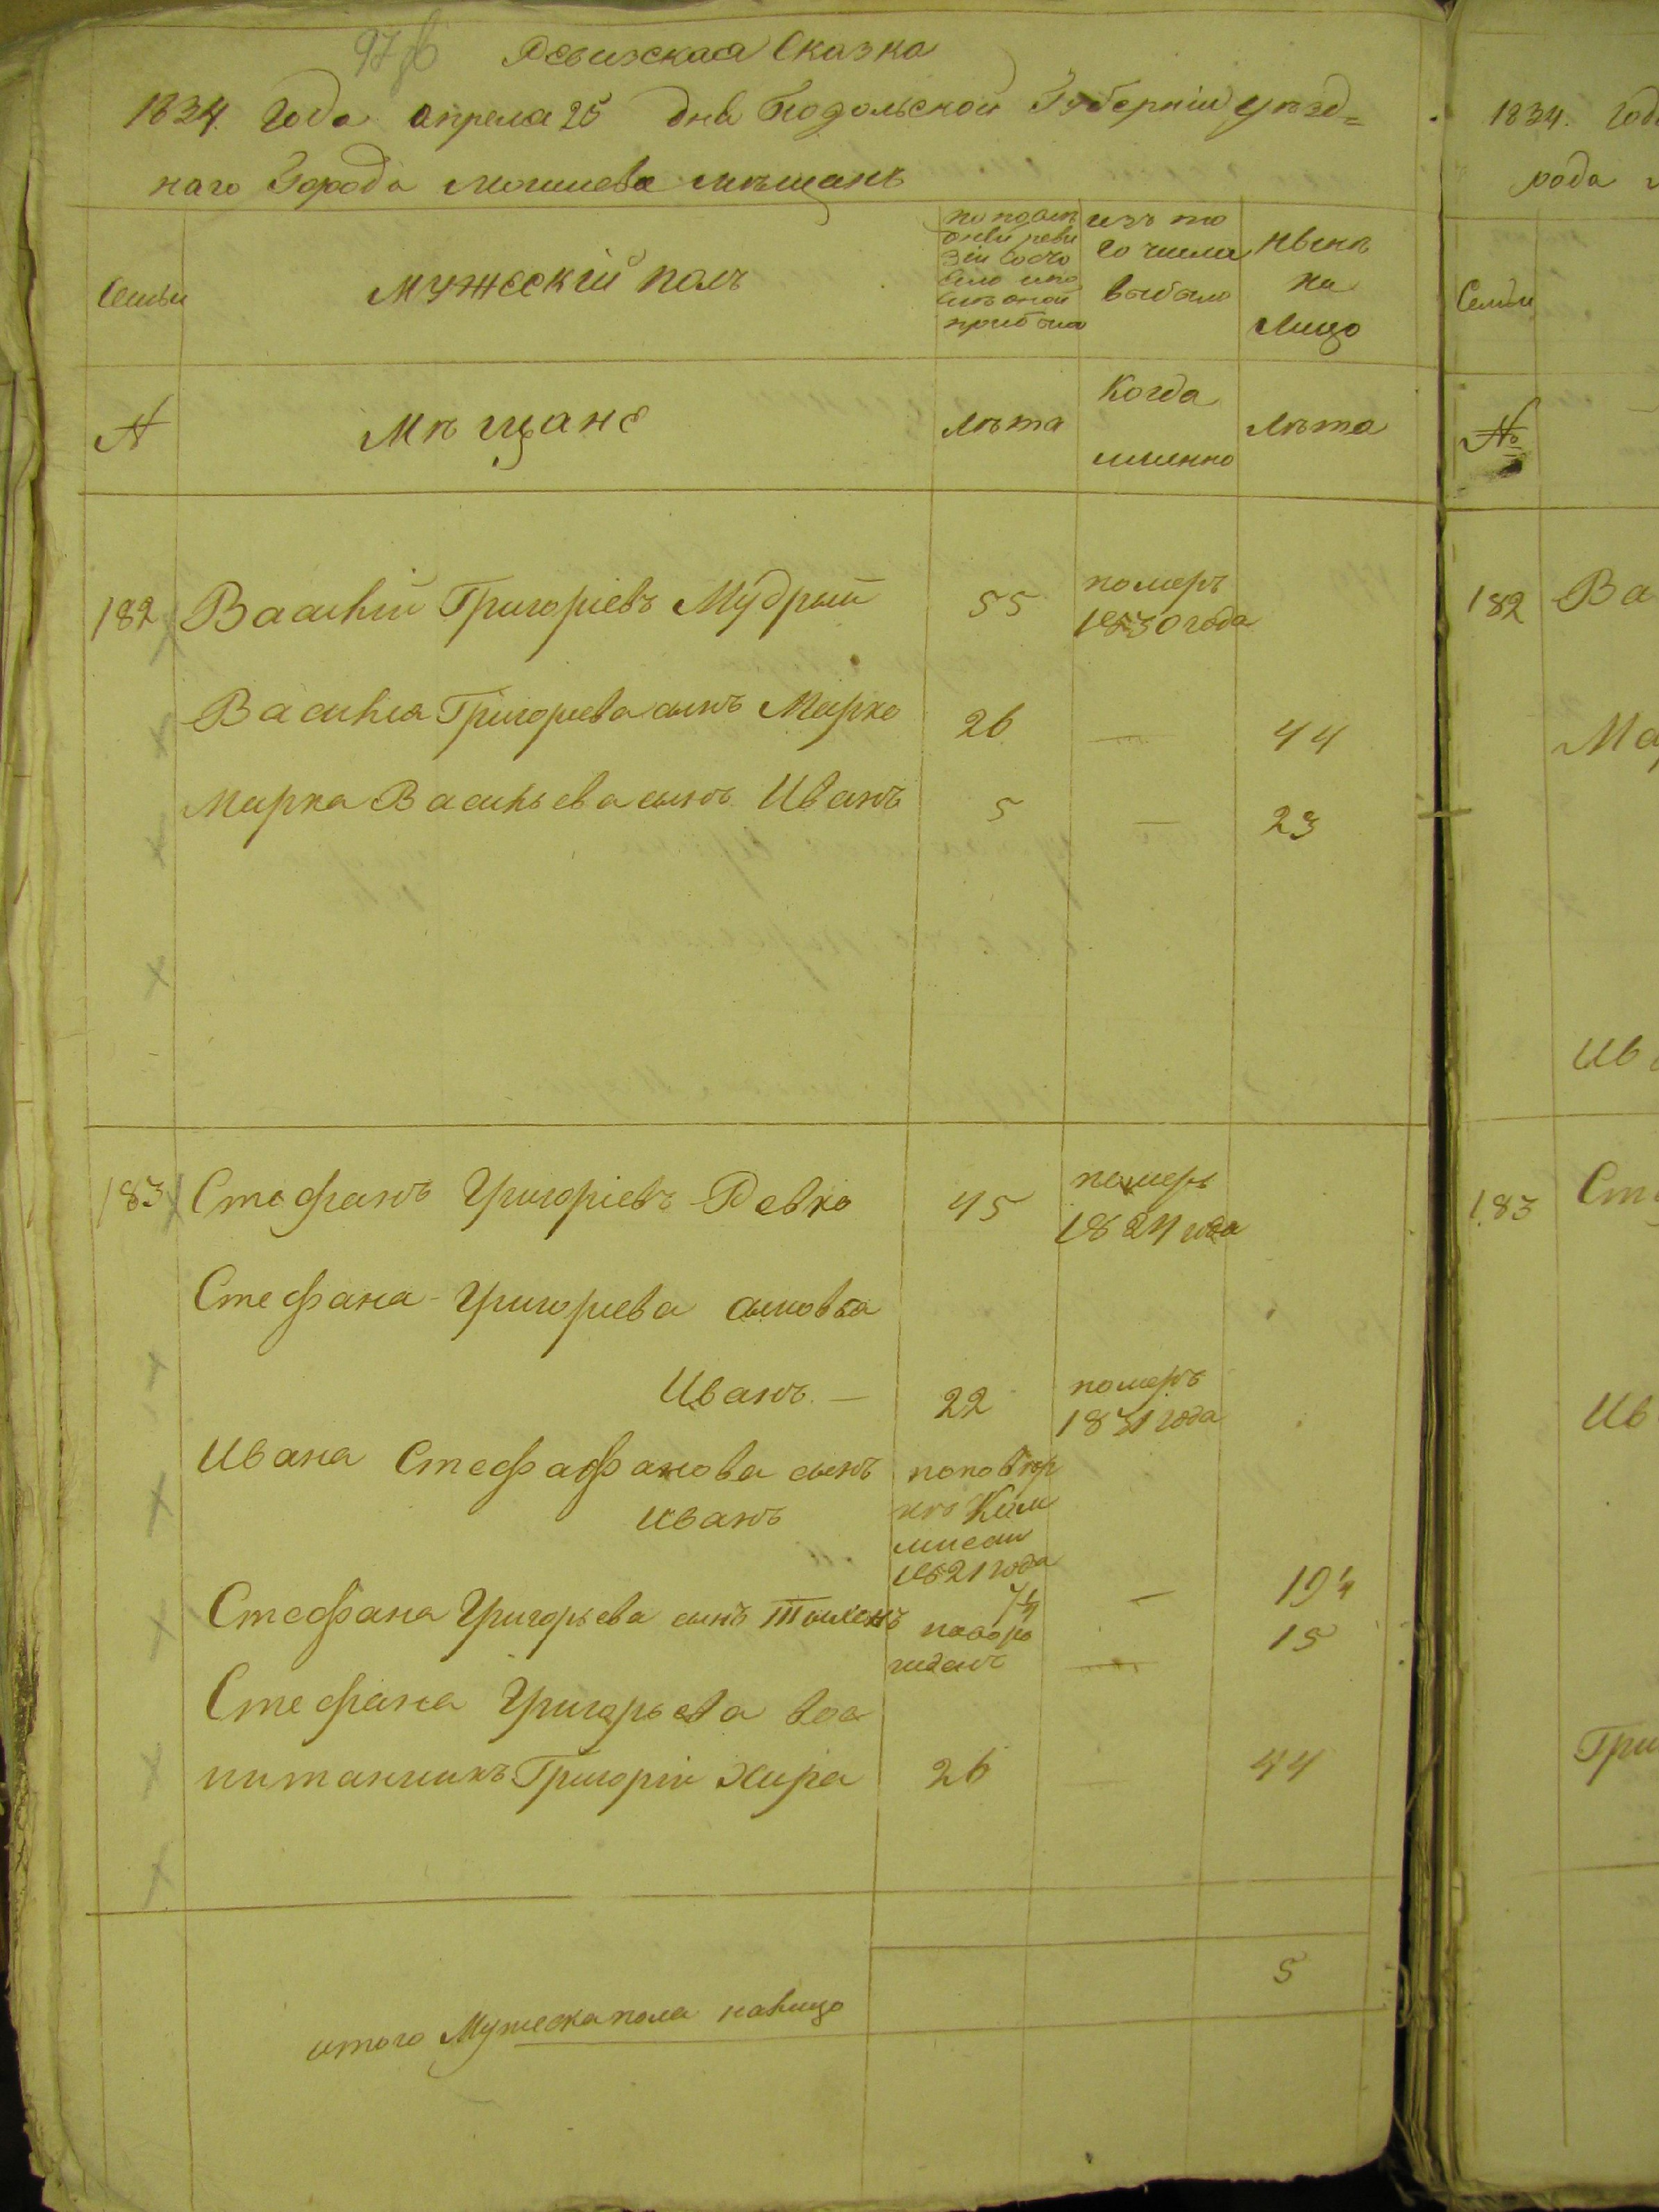 Ревизская Сказка
1834. года апреля 25 дня Подольской Губернии уѣзд=
наго Города Могилева мѣщанъ
Семьи
мужескій полъ
по послѣ
дней реви
зіи состо
яло и по
слѣ оной
прибыло
изъ то
го числа
выбыло
нынѣ
на
лицо
№
Мѣщане
лѣта
когда
именно
лѣта
182 Василій Григоріевъ Мудрый 55 померъ
1830 года
Василія Григорієва сынъ Марко 26 — 44
Марка Васильева сынъ Иванъ 5 — 23
183 Стефанъ Григоріевъ Ревко 45 померъ
1824 года
Стефана Григориева сыновья
Иванъ — 22 померъ
1831 года
Ивана Стефафанова сынъ
Иванъ
1821 года
— 19
Стефана Григорьева сынъ
15
Стефана Григорьева вос
питанникъ Григорій Хира 26 44
итого Мужеска пола налицо 5
1834. Год
рода
Семьи
№
182 Ва
Ма
Ив
183 Сте
Ив
Гри